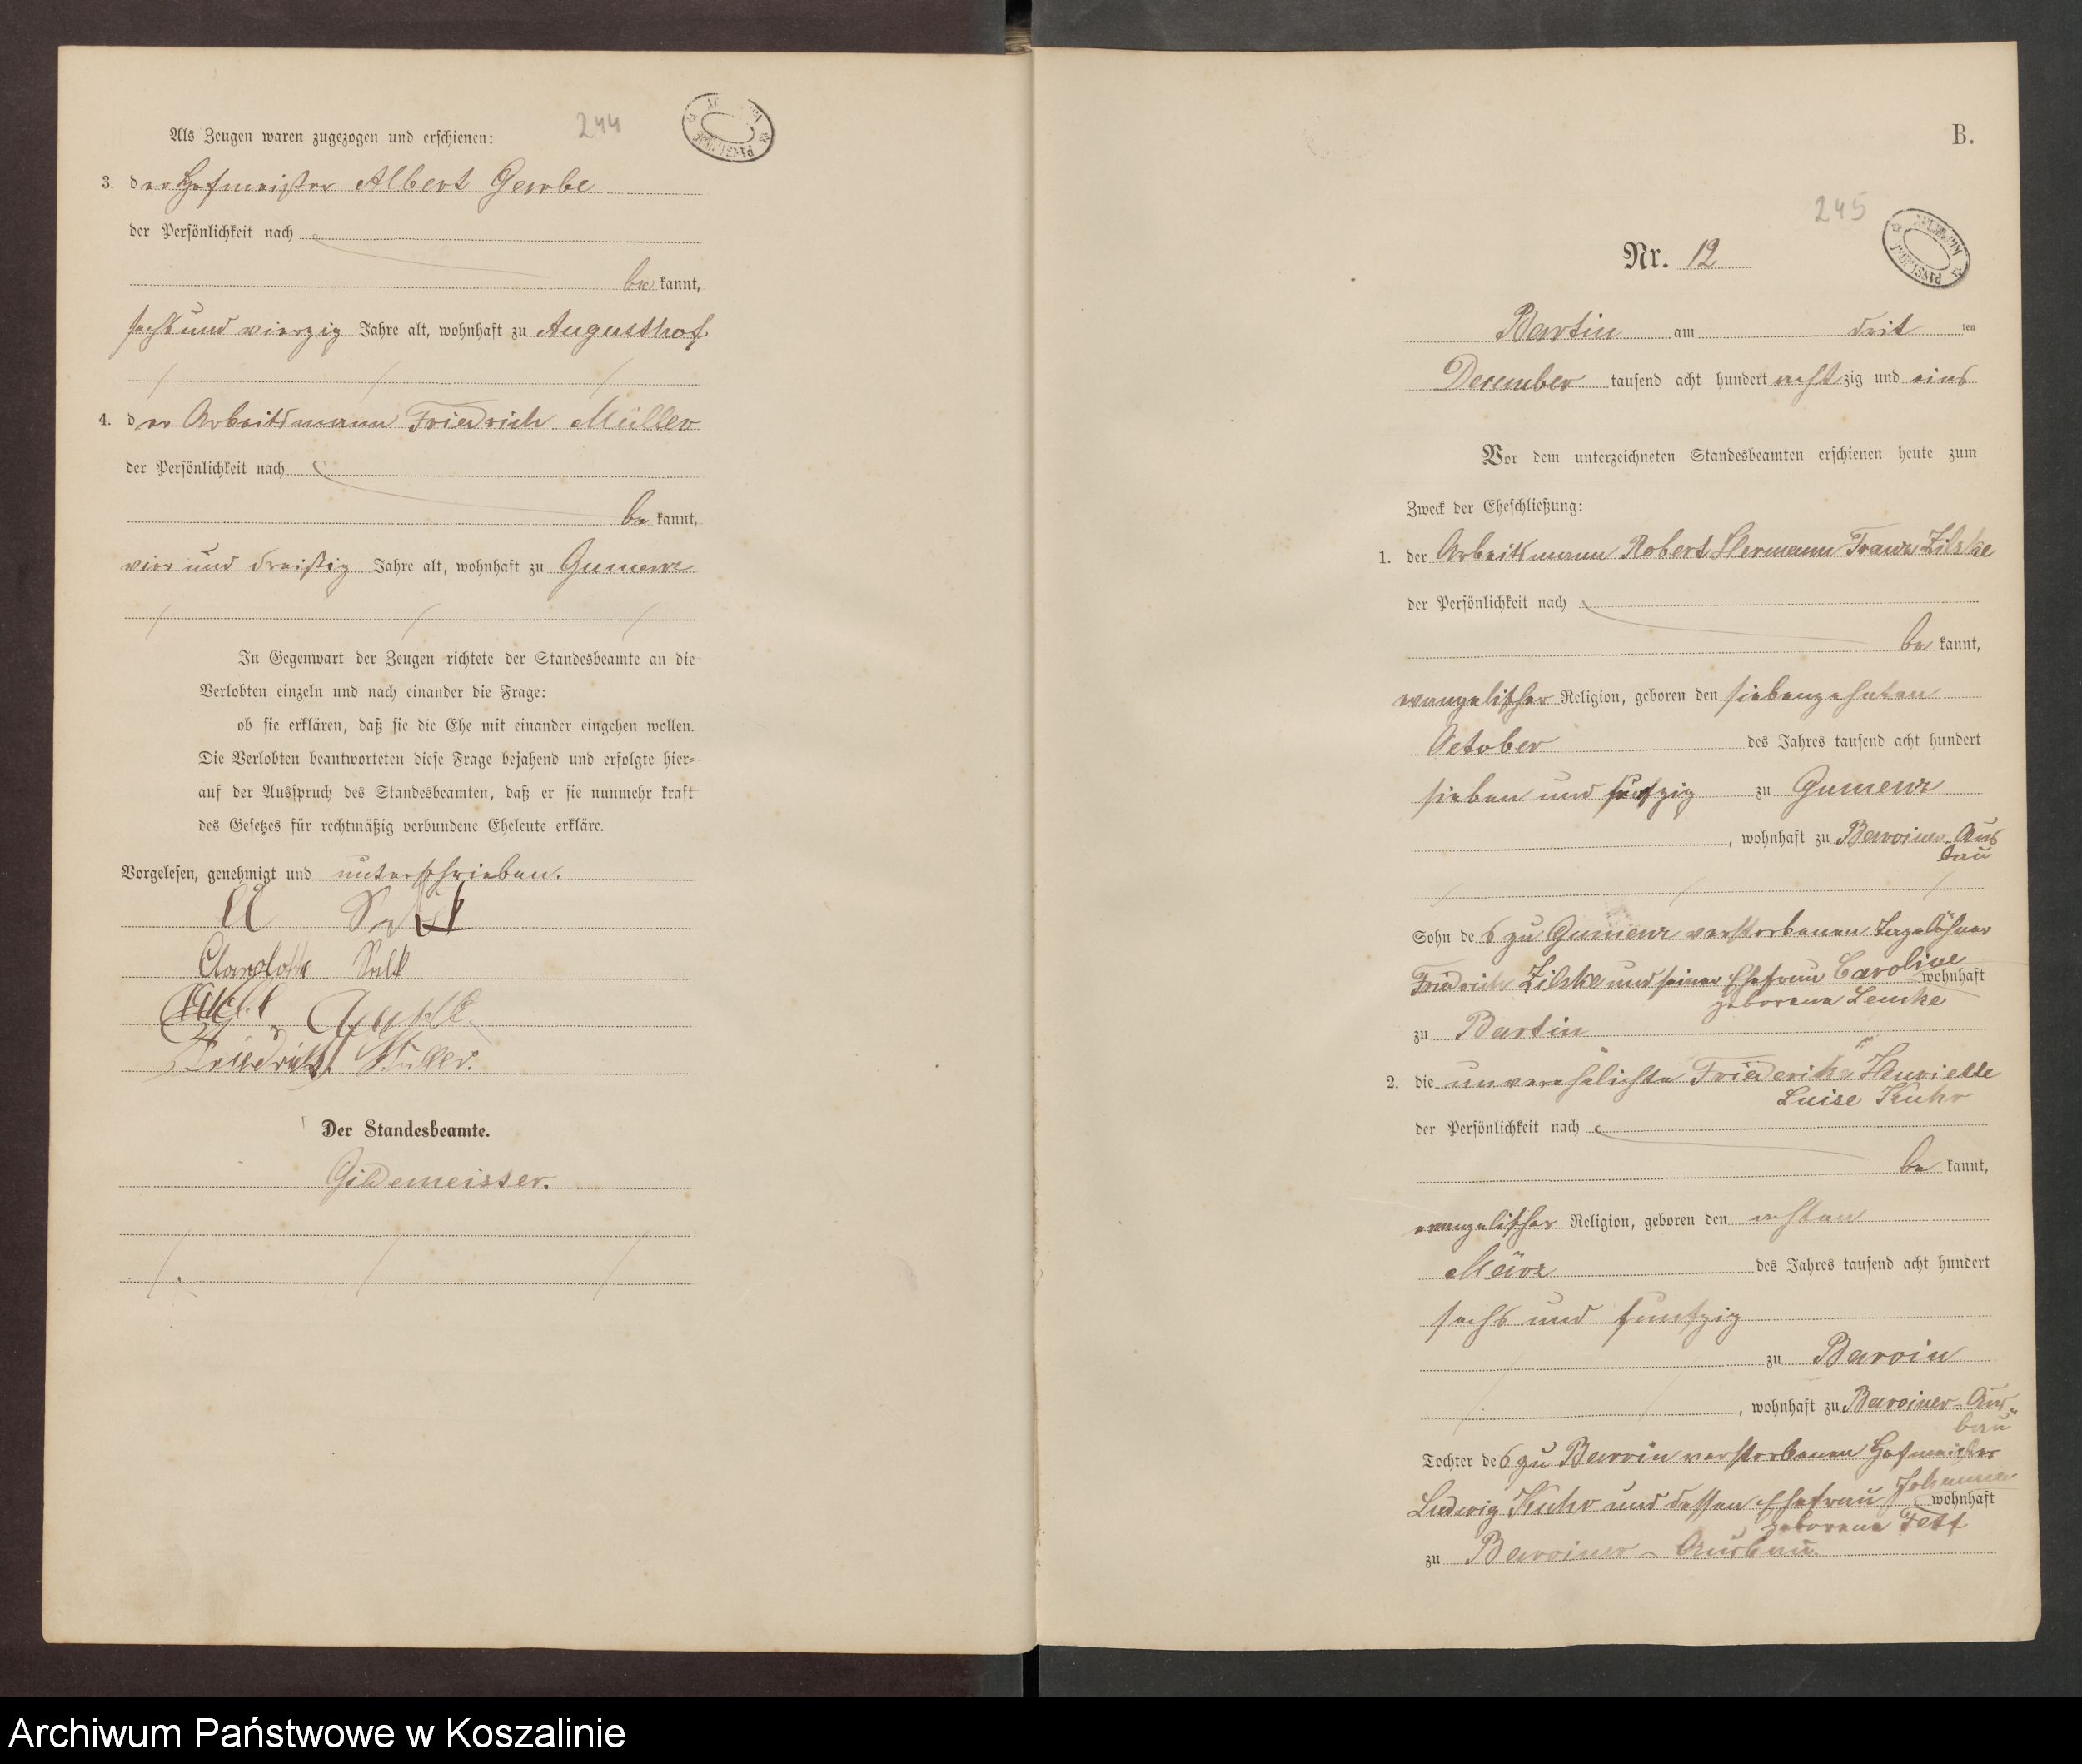 244
Als Zeugen waren zugezogen und erschienen:
3. der Hofmeister Albert Gerbe
der Persönlichkeit nach
bekannt,
sechs und vierzig Jahre alt, wohnhaft zu Augusthof,
4. der Arbeitsmann Friedrich Müller
der Persönlichkeit nach
bekannt,
vier und dreißig Jahre alt, wohnhaft zu Gumenz
In Gegenwart der Zeugen richtete der Standesbeamte an die
Verlobten einzeln und nach einander die Frage:
ob sie erklären, daß sie die Ehe mit einander eingehen wollen.
Die Verlobten beantworteten diese Frage bejahend und erfolgte hier=
auf der Ausspruch des Standesbeamten, daß er sie nunmehr kraft
des Gesetzes für rechtmäßig verbundene Eheleute erkläre.
Vorgelesen, genehmigt und unterschrieben.
Friedrich Müller.
Der Standesbeamte.
Gildemeister.
B.
245
Nr. 12
Bartin am dritten
December tausend acht hundert achtzig und eins
Vor dem unterzeichneten Standesbeamten erschienen heute zum
Zweck der Eheschließung:
1. der Arbeitsmann Robert Hermann Franz Zilske
der Persönlichkeit nach
bekannt,
evangelischer Religion, geboren den siebenzehnten
October des Jahres tausend acht hundert
sieben und funfzig zu Gumenz
, wohnhaft zu Barviner-Aus
bau
Sohn des zu Gumenz verstorbenen Tagelöhner
Friedrich Zilske und seiner Ehefrau Caroline
geborene Lemke wohnhaft
zu Bartin
2. die unverehelichte Friederike Henriette
Luise Kuhr
der Persönlichkeit nach
bekannt,
evangelischer Religion, geboren den achten
März des Jahres tausend acht hundert
sechs und funfzig
zu Barvin
, wohnhaft zu Barviner-Aus-
bau
Tochter des zu Barvin verstorbenen Hofmeister
Ludwig Kuhr und dessen Ehefrau Johanna
geborene wohnhaft
zu Barviner-Ausbau
Archiwum Państwowe w Koszalinie